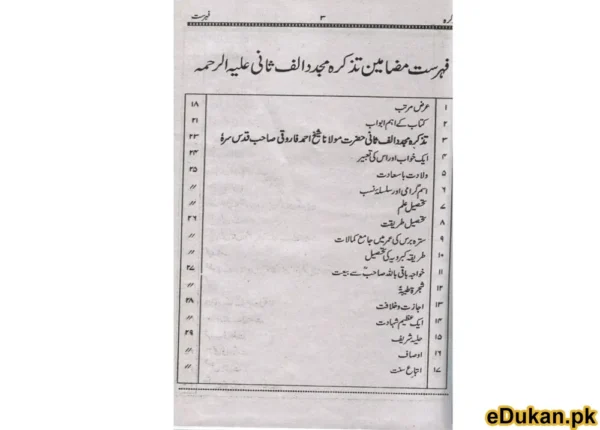 فہرست ۳ کرہ
فہرست مضامین تذکرہ مجدد الف ثانی علیہ الرحمہ
۱ عرض مرتب ۱۸
۲ کتاب کے اہم ابواب ۲۱
۳ تذکرہ مجدد الف ثانی حضرت مولانا شیخ احمد فاروقی صاحب قدس سرہٗ ۲۳
۴ ایک خواب اور اس کی تعبیر ۲۴
۵ ولادت باسعادت ۲۵
۶ اسم گرامی اور سلسلۂ نسب //
۷ تحصیل علم //
۸ تحصیل طریقت ۲۶
۹ سترہ برس کی عمر میں جامع کمالات //
۱۰ طریقہ کبرویہ کی تحصیل //
۱۱ خواجہ باقی باللہ صاحبؒ سے بیعت ۲۷
۱۲ شجر طیبہ //
۱۳ اجازت و خلافت ۲۸
۱۴ ایک عظیم شہادت //
۱۵ حلیہ شریف ۲۹
۱۶ اوصاف //
۱۷ اتباع سنت //
eDukan.pk